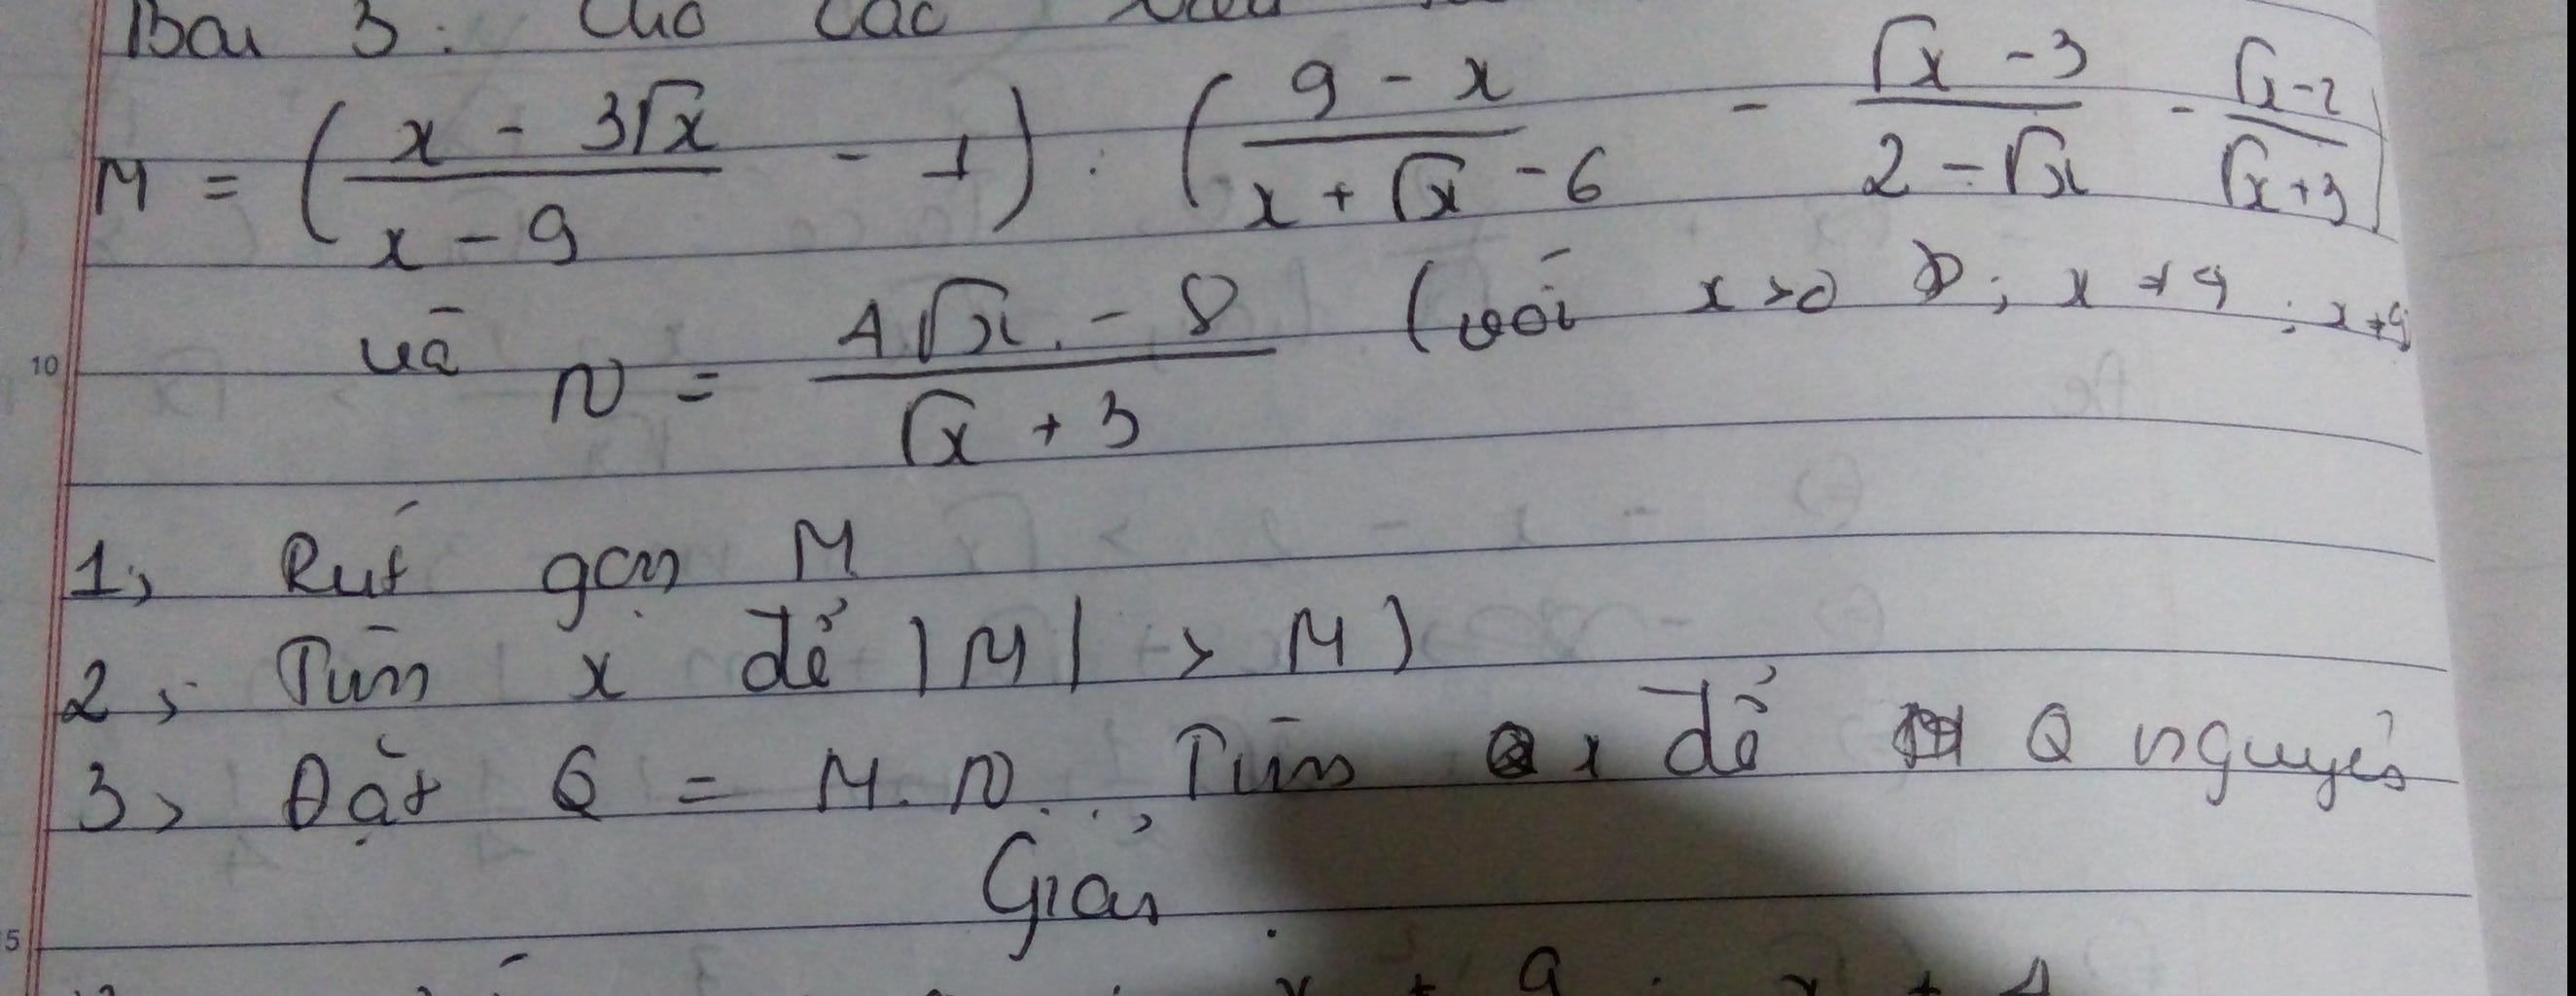 Bài 3: Cho các
M = ( (x - 3√x)/(x - 9) - 1 ) : ( (9 - x)/(x + √x - 6) - (√x - 3)/(2 - √x) - (√x - 2)/(√x + 3) )
và N = (4√x - 8)/(√x + 3) (với x > 0 ; x ≠ 4 ; x ≠ 9
1, Rút gọn M
2, Tìm x để |M| > M)
3, Đặt Q = M.N. Tìm x để Q nguyên
Giải